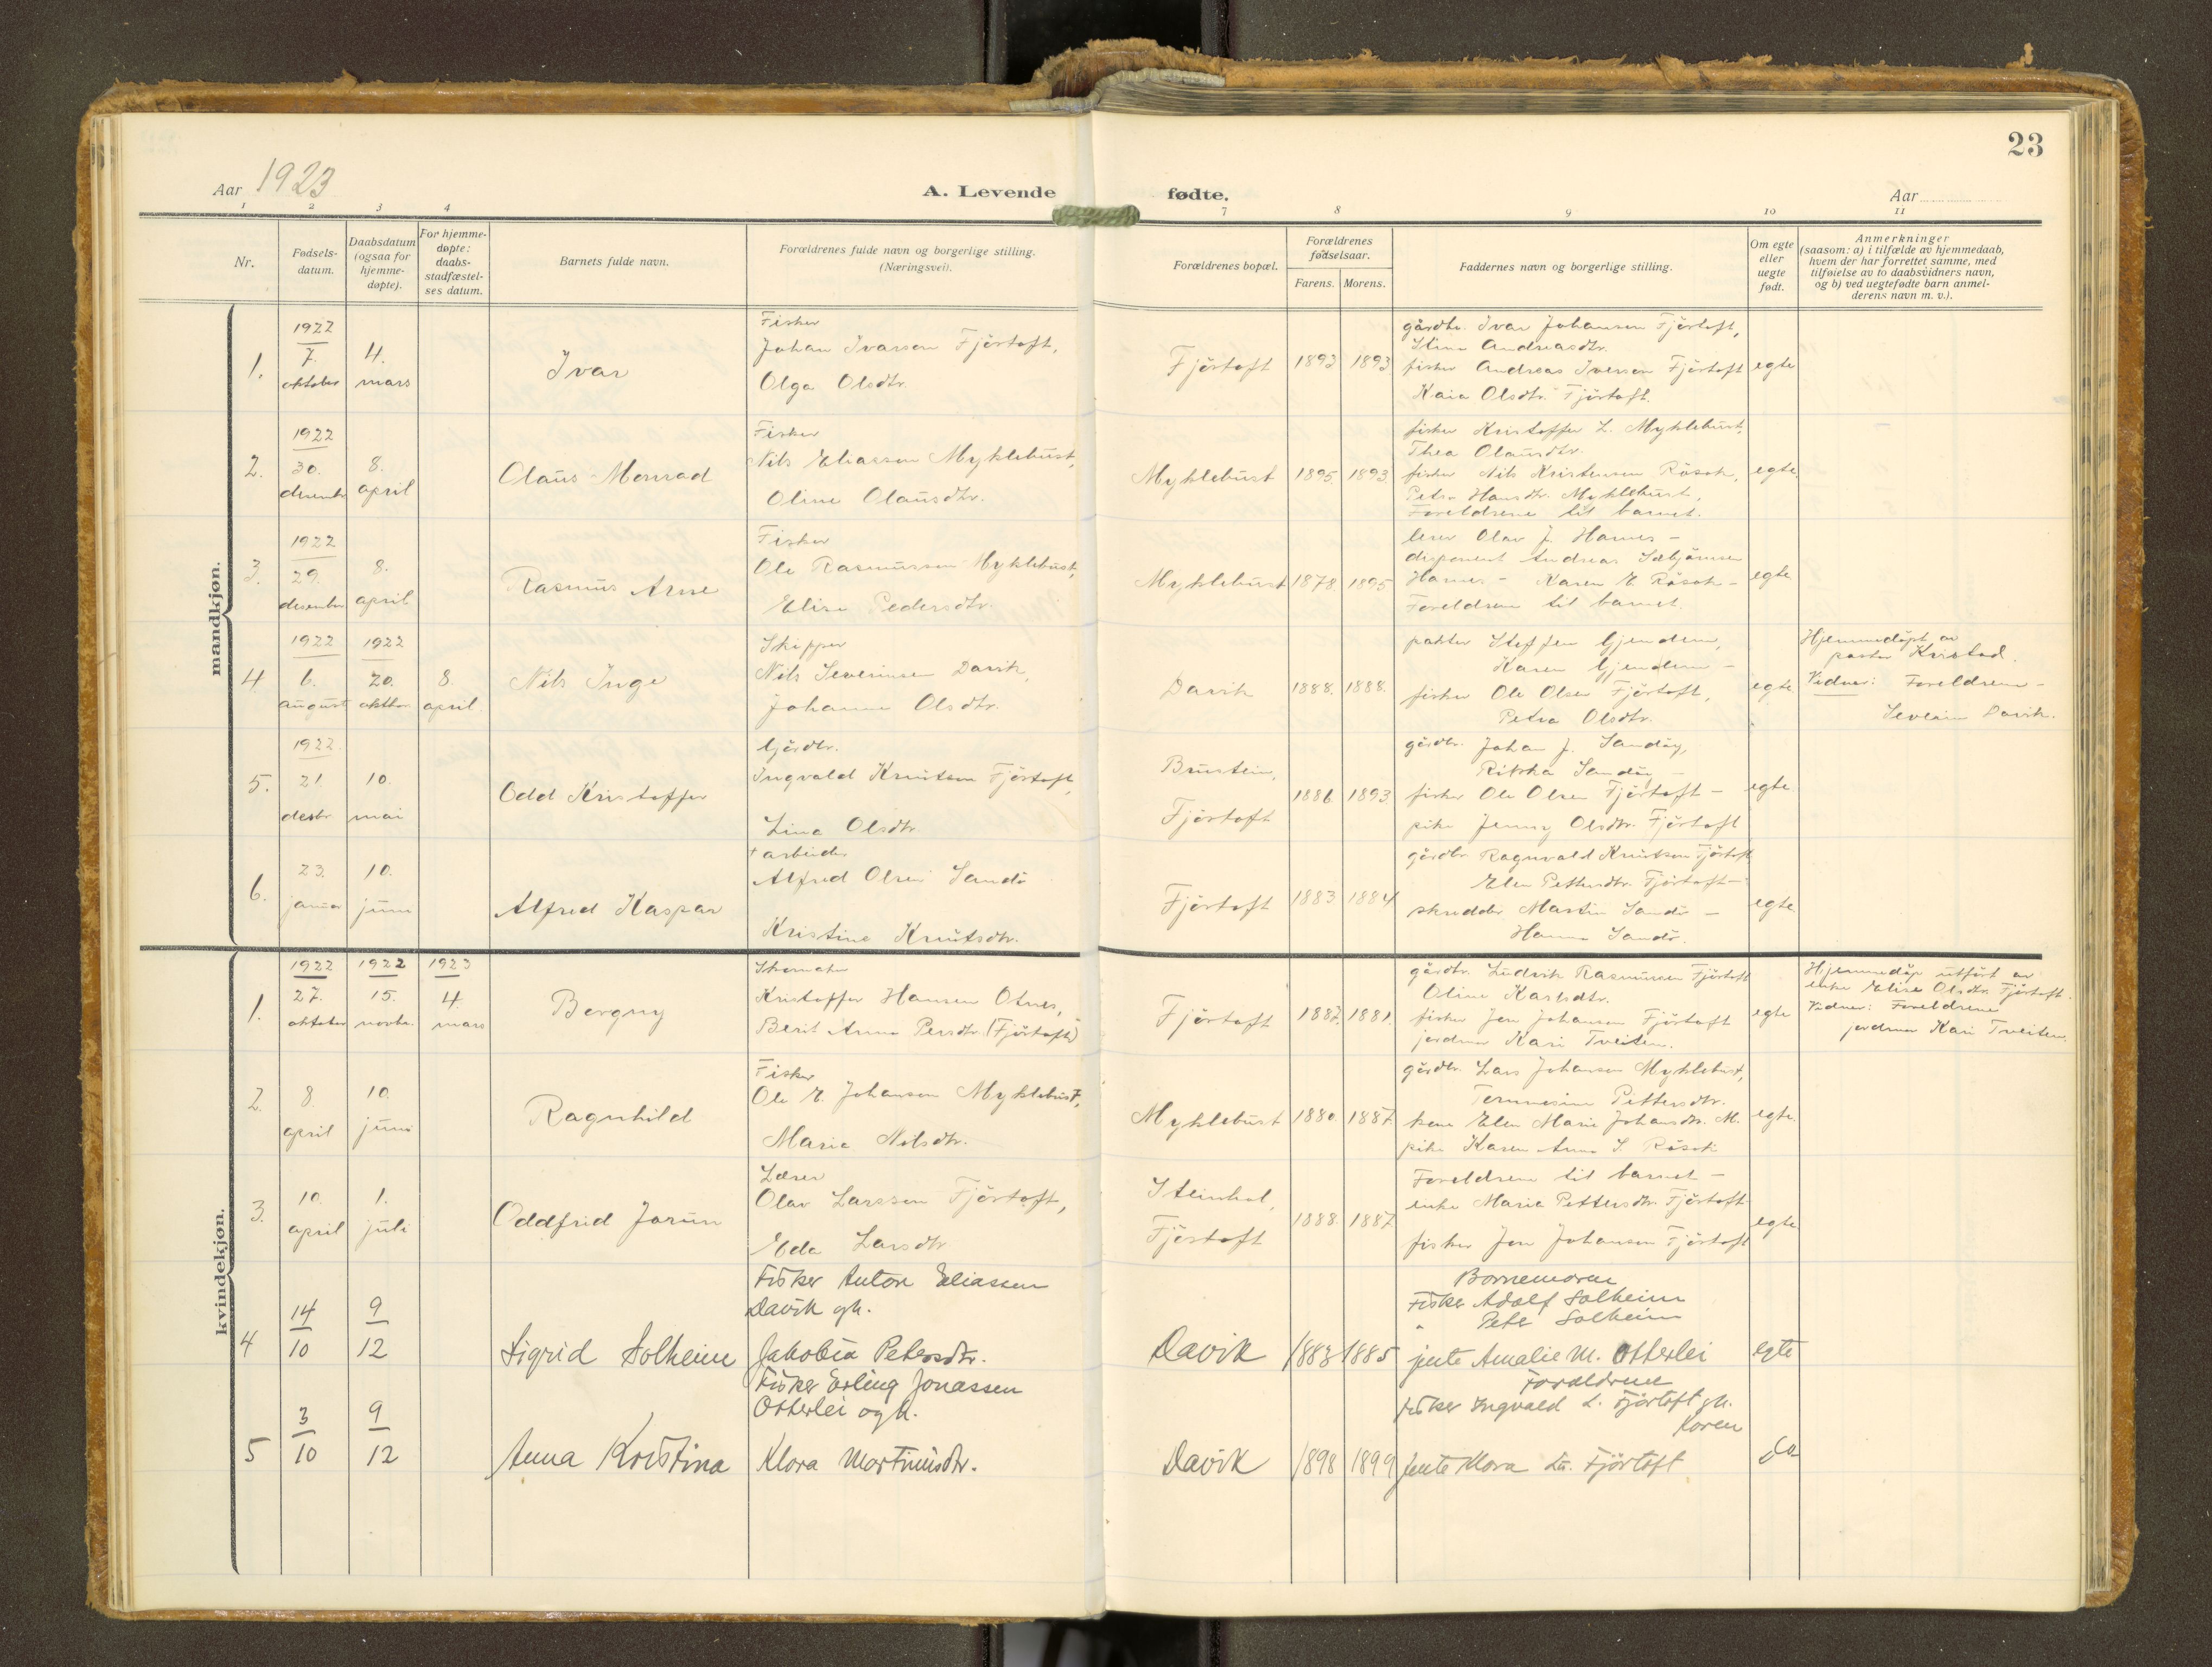 23
Aar 1923
A. Levende fødte.
Aar
1 2 3 4 7 8 9 10 11
Nr.
Fødsels-
datum.
Daabsdatum
(ogsaa for
hjemme-
døpte).
For hjemme-
døpte:
daabs-
stadfæstel-
ses datum.
Barnets fulde navn.
Forældrenes fulde navn og borgerlige stilling.
(Næringsvei).
Forældrenes bopæl.
Forældrenes
fødselsaar.
Farens. Morens.
Faddernes navn og borgerlige stilling.
Om egte
eller
uegte
født.
Anmerkninger
(saasom: a) i tilfælde av hjemmedaab,
hvem der har forrettet samme, med
tilføielse av to daabsvidners navn,
og b) ved uegtefødte barn anmel-
derens navn m. v.).
mandkjøn.
1.
1922
7.
oktober
4.
mars
Ivar
Fisker
Johan Ivarsen Fjörtoft,
Olga Olsdtr.
Fjörtoft
1893 1893
gårdbr. Ivar Johansen Fjörtoft,
Stina Andreasdtr.
fisker Andreas Iversen Fjörtoft
Kaia Olsdtr. Fjörtoft.
egte
2.
1922
30.
desember
8.
april
Olaus Monrad
Fisker
Nils Eliassen Myklebust,
Oline Olausdtr.
Myklebust
1895. 1893.
fisker Kristoffer L. Myklebust,
Thea Olausdtr.
fisker Nils Kristensen Rösok,
Petra Hansdtr. Myklebust,
Foreldrene til barnet.
egte.
3.
1922
29.
desember
8.
april
Rasmus Arne
Fisker
Ole Rasmussen Myklebust,
Elise Pedersdtr.
Myklebust
1878. 1895
lærer Olav J. Hames -
disponent Andreas Sæbjörnsen
Hames - Karen E. Rösok -
Foreldrene til barnet
egte
4
1922
6.
august
1922
20.
oktbr.
8.
april.
Nils Inge
Skipper
Nils Severinsen Davik,
Johanne Olsdtr.
Davik
1888. 1888.
pakter Steffen Gjendem,
Karen Gjendem -
fisker Ole Olsen Fjörtoft,
Petra Olsdtr.
egte.
Hjemmedöpt av
pastor Kristad.
Vidner: Foreldrene -
Severin Davik.
5.
1922
21
desbr.
10.
mai
Odd Kristoffer
Gårdbr.
Ingvald Knutsen Fjörtoft,
Lina Olsdtr.
Brustein,
Fjörtoft
1886 1893.
gårdbr. Johan J. Sandöy,
Rikka Sandöy -
fisker Ole Olsen Fjörtoft -
pike Jenny Olsdtr. Fjörtoft
egte.
6.
23.
januar
10.
juni
Alfred Kaspar
+ arbeider
Alfred Olsen Sandö
Kristine Knutsdtr.
Fjörtoft
1883 1884
gårdbr. Ragnvald Knutsen Fjörtoft
Elen Pettersdtr. Fjörtoft -
skredder Martin Sandö -
Hanna Sandö.
egte.
kvindekjøn.
1.
1922
27.
oktober
1922
15.
novbr.
1923
4.
mars
Borgny
Skomaker
Kristoffer Hansen Otnes,
Berit Anna Persdtr. (Fjörtoft)
Fjörtoft
1887. 1881.
gårdbr. Ludvik Rasmussen Fjörtoft
Oline Karlsdtr.
fisker Jon Johansen Fjörtoft
jordmor Kari Tveiten.
egte
Hjemmedåp utfört av
enke Elise Olsdtr. Fjörtoft.
Vidner: Foreldrene
jordmor Kari Tveiten.
2.
8.
april
10.
juni
Ragnhild
Fisker
Ole E. Johansen Myklebust,
Maria Nilsdtr.
Myklebust
1880. 1887.
gårdbr. Lars Johansen Myklebust,
Pettersdtr.
kone Elen Marie Johansdtr. M.
pike Karen Anna S. Rösok
egte.
3.
10.
april
1.
juli
Oddfrid Jorun
Lærer
Olav Larssen Fjörtoft,
Eda Larsdtr.
Steinhol,
Fjörtoft
1888. 1887
Foreldrene til barnet -
enke Maria Pettersdtr. Fjörtoft
fisker Jon Johansen Fjörtoft
egte
4
14
10
9
12
Sigrid Solheim
Fisker Anton Eliassen
Davik gh.
Jakobia Petersdtr.
Davik
1883 1885
Barnemoren
Fisker Adolf Solheim
" Peter Solheim
jente Amalie M. Otterlei
egte
5
3
10
9
12
Anna Kristina
Fisker Erling Jonassen
Otterlei ogh.
Klara Martinusdtr.
Davik
1898 1899
Foraldrene
fisker Ingvald L. Fjörtoft gh.
Karen
jente Klara La. Fjörtoft
do